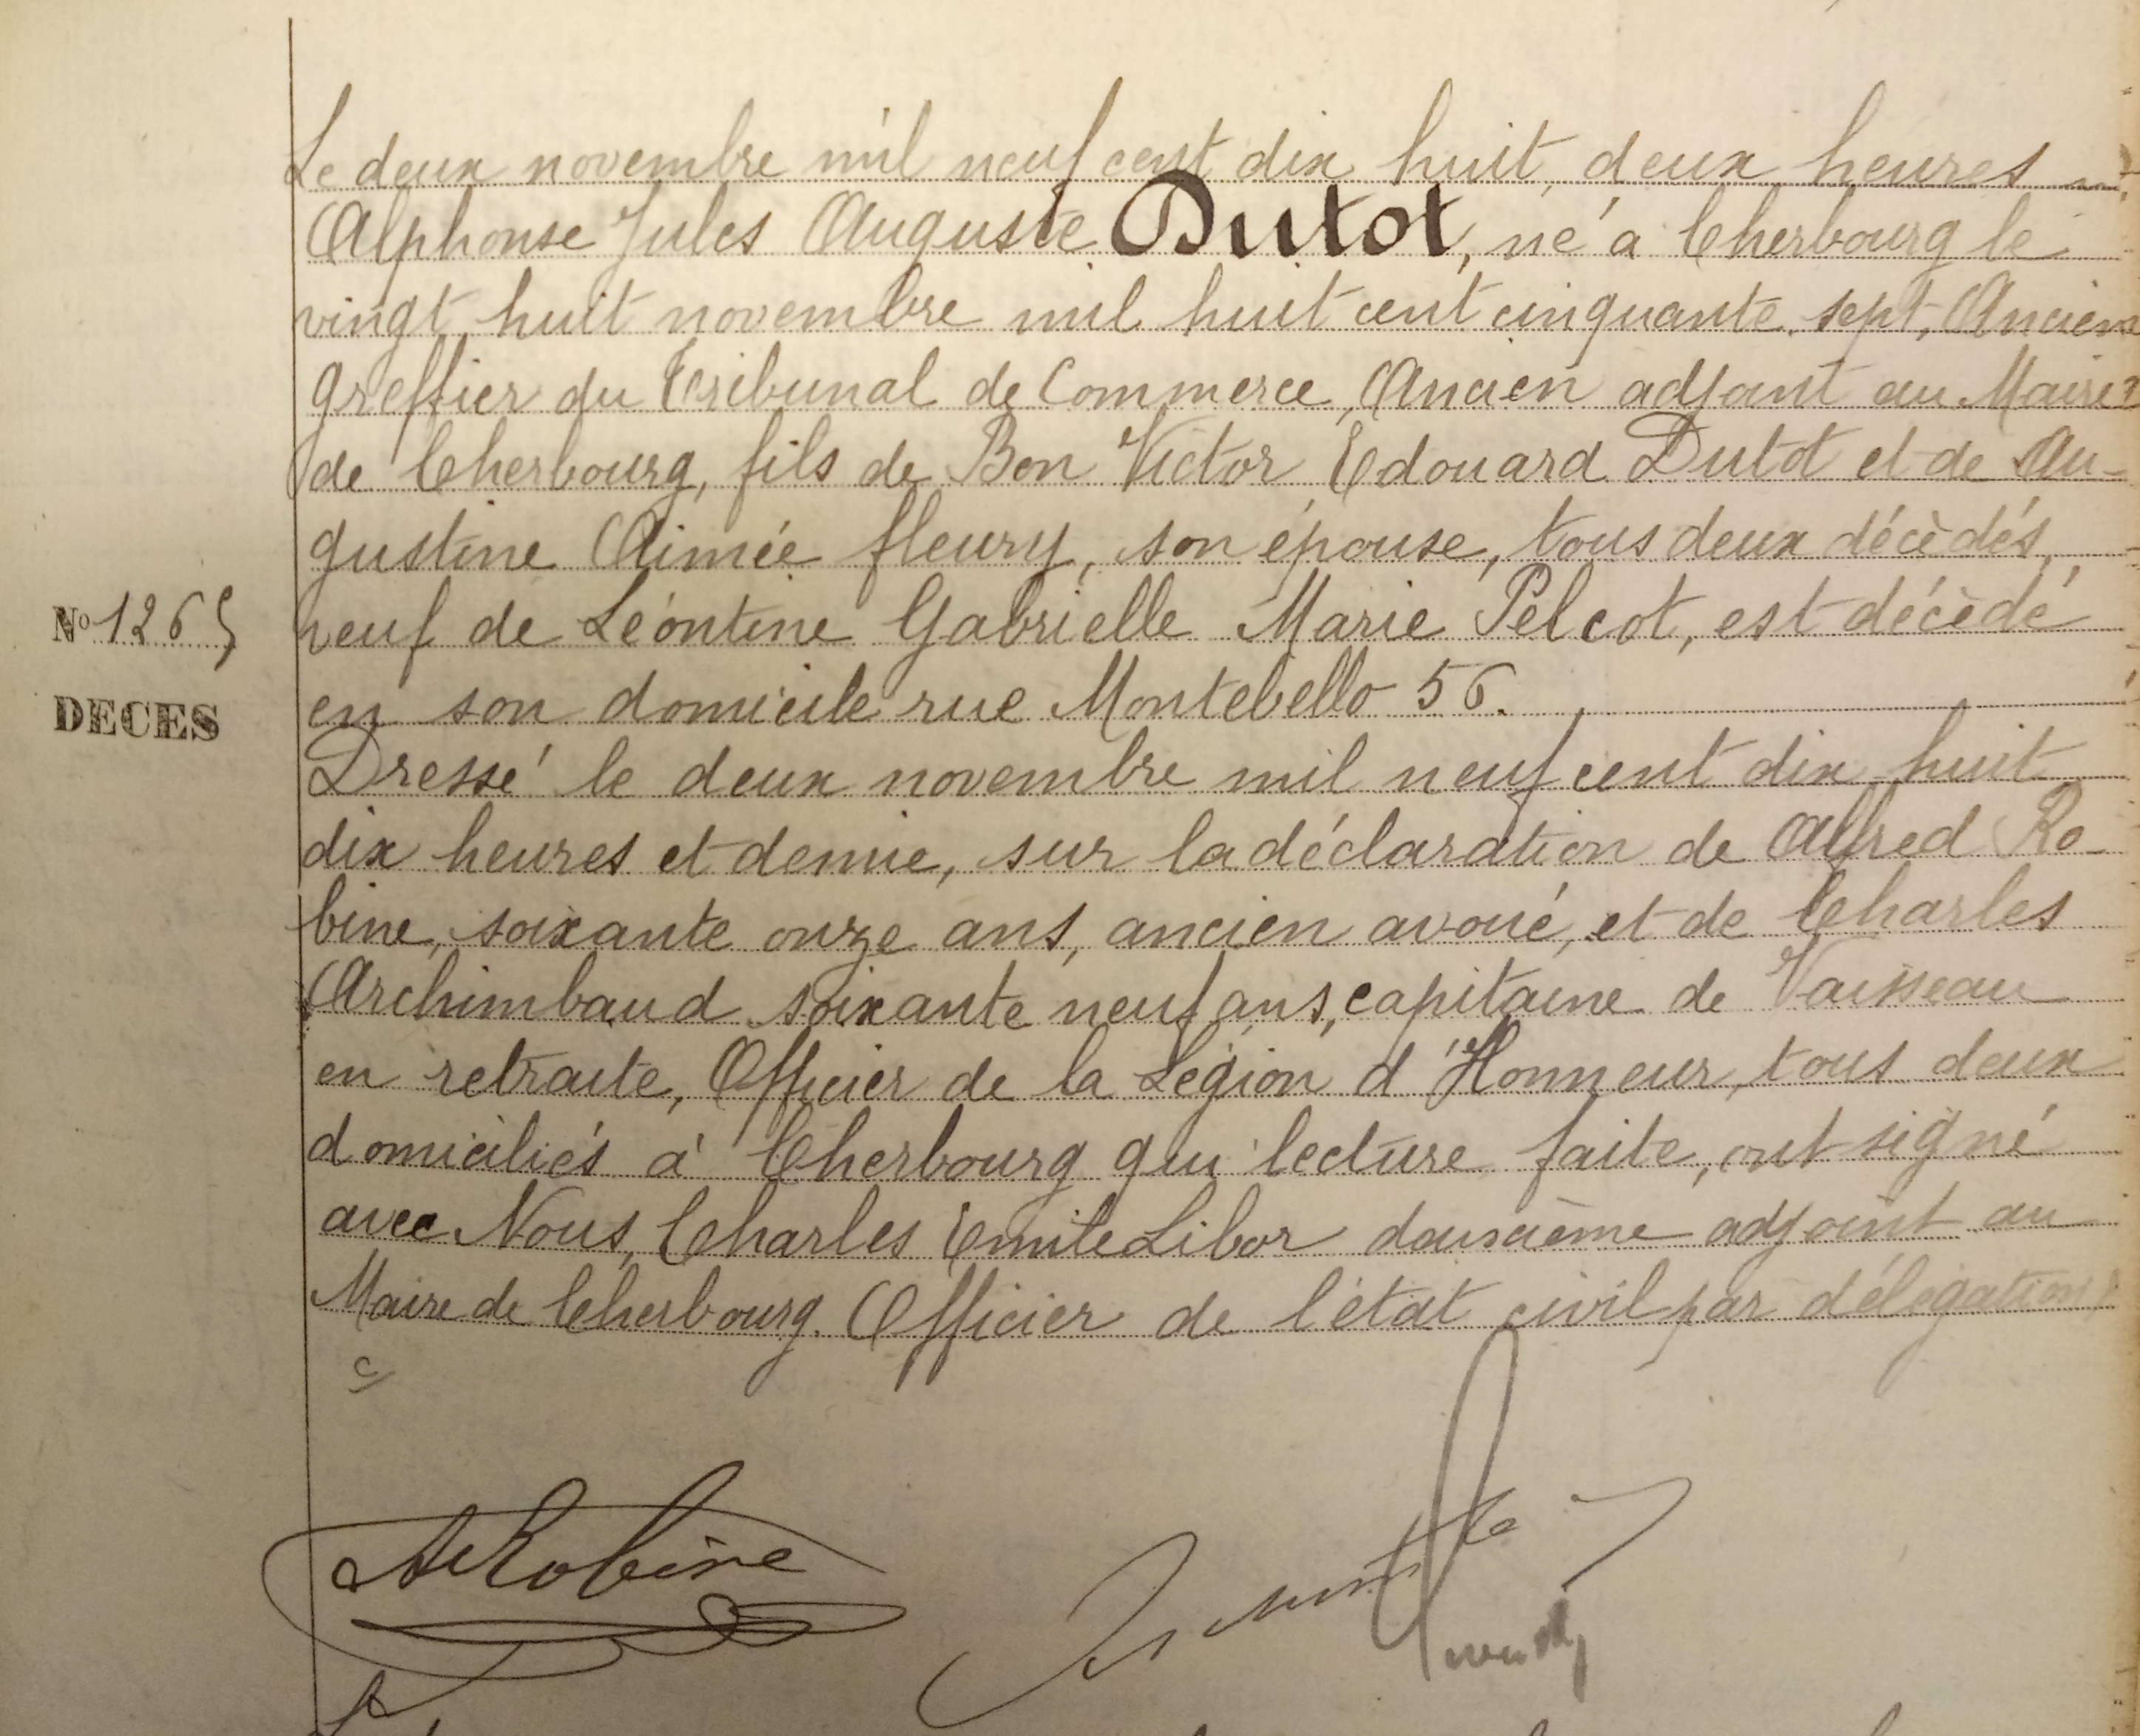 Le deux novembre mil neuf cent dix huit, deux heures
Alphonse Jules Auguste Dutot, né à Cherbourg le
vingt huit novembre mil huit cent cinquante sept, Ancien
greffier du Tribunal de Commerce, Ancien adjoint au Maire
de Cherbourg, fils de Bon Victor Edouard Dutot et de Au-
gustine Aimée fleury, son épouse, tous deux décèdés,
N° 1265
veuf de Léontine Gabrielle Marie Pelcot, est décèdé
DECES
en son domicile rue Montebello 56.
Dressé le deux novembre mil neuf cent dix huit
dix heures et demie, sur la déclaration de Alfred Ro-
bine, soixante onze ans, ancien avoué, et de Charles
Archimbaud soixante neuf ans, capitaine de Vaisseau
en retraite, Officier de la Légion d'Honneur, tous deux
domiciliés à Cherbourg qui lecture faite, ont signé
avec Nous, Charles Emile Libor deuxième adjoint au
Maire de Cherbourg. Officier de l'état civil par délégation
A Robine